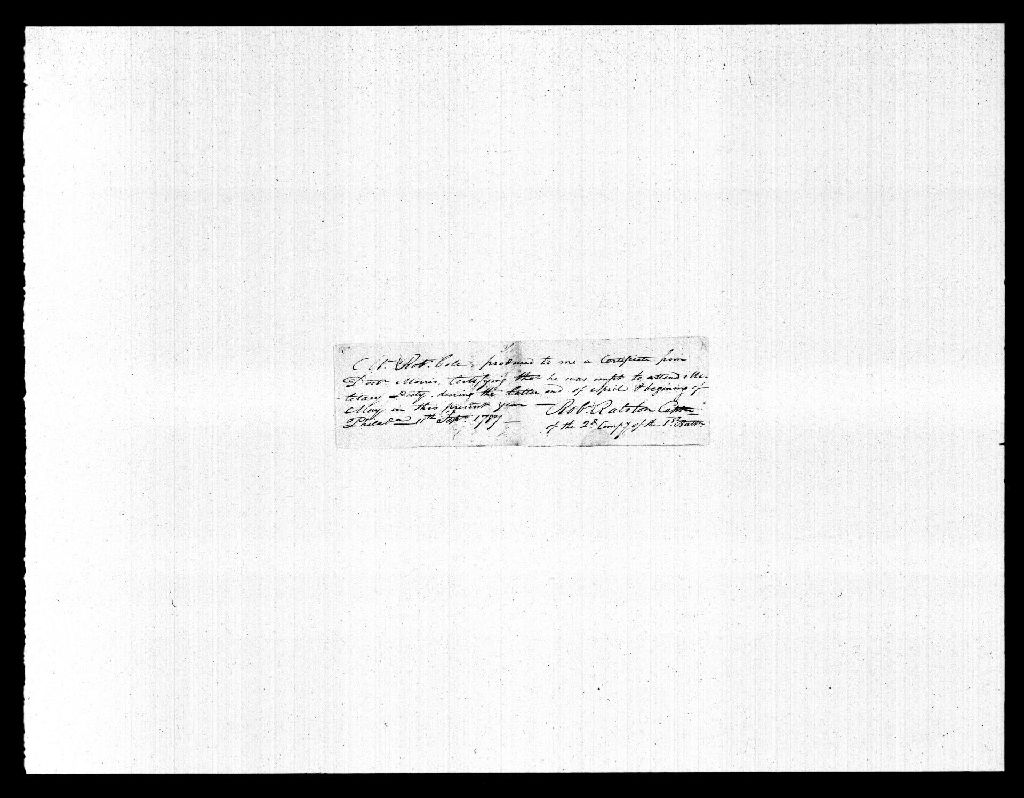 Robt. Cole, produced to me a Certificate from
Doctr. Morris, Certifying that he was unfit to attend Mi-
litary Duty, during the latter end of April & begining of
May in this present year
Philada. 11th Sepr. 1789
Robt. Ralston Captn.
of the 2d Compy of the 1st Battn